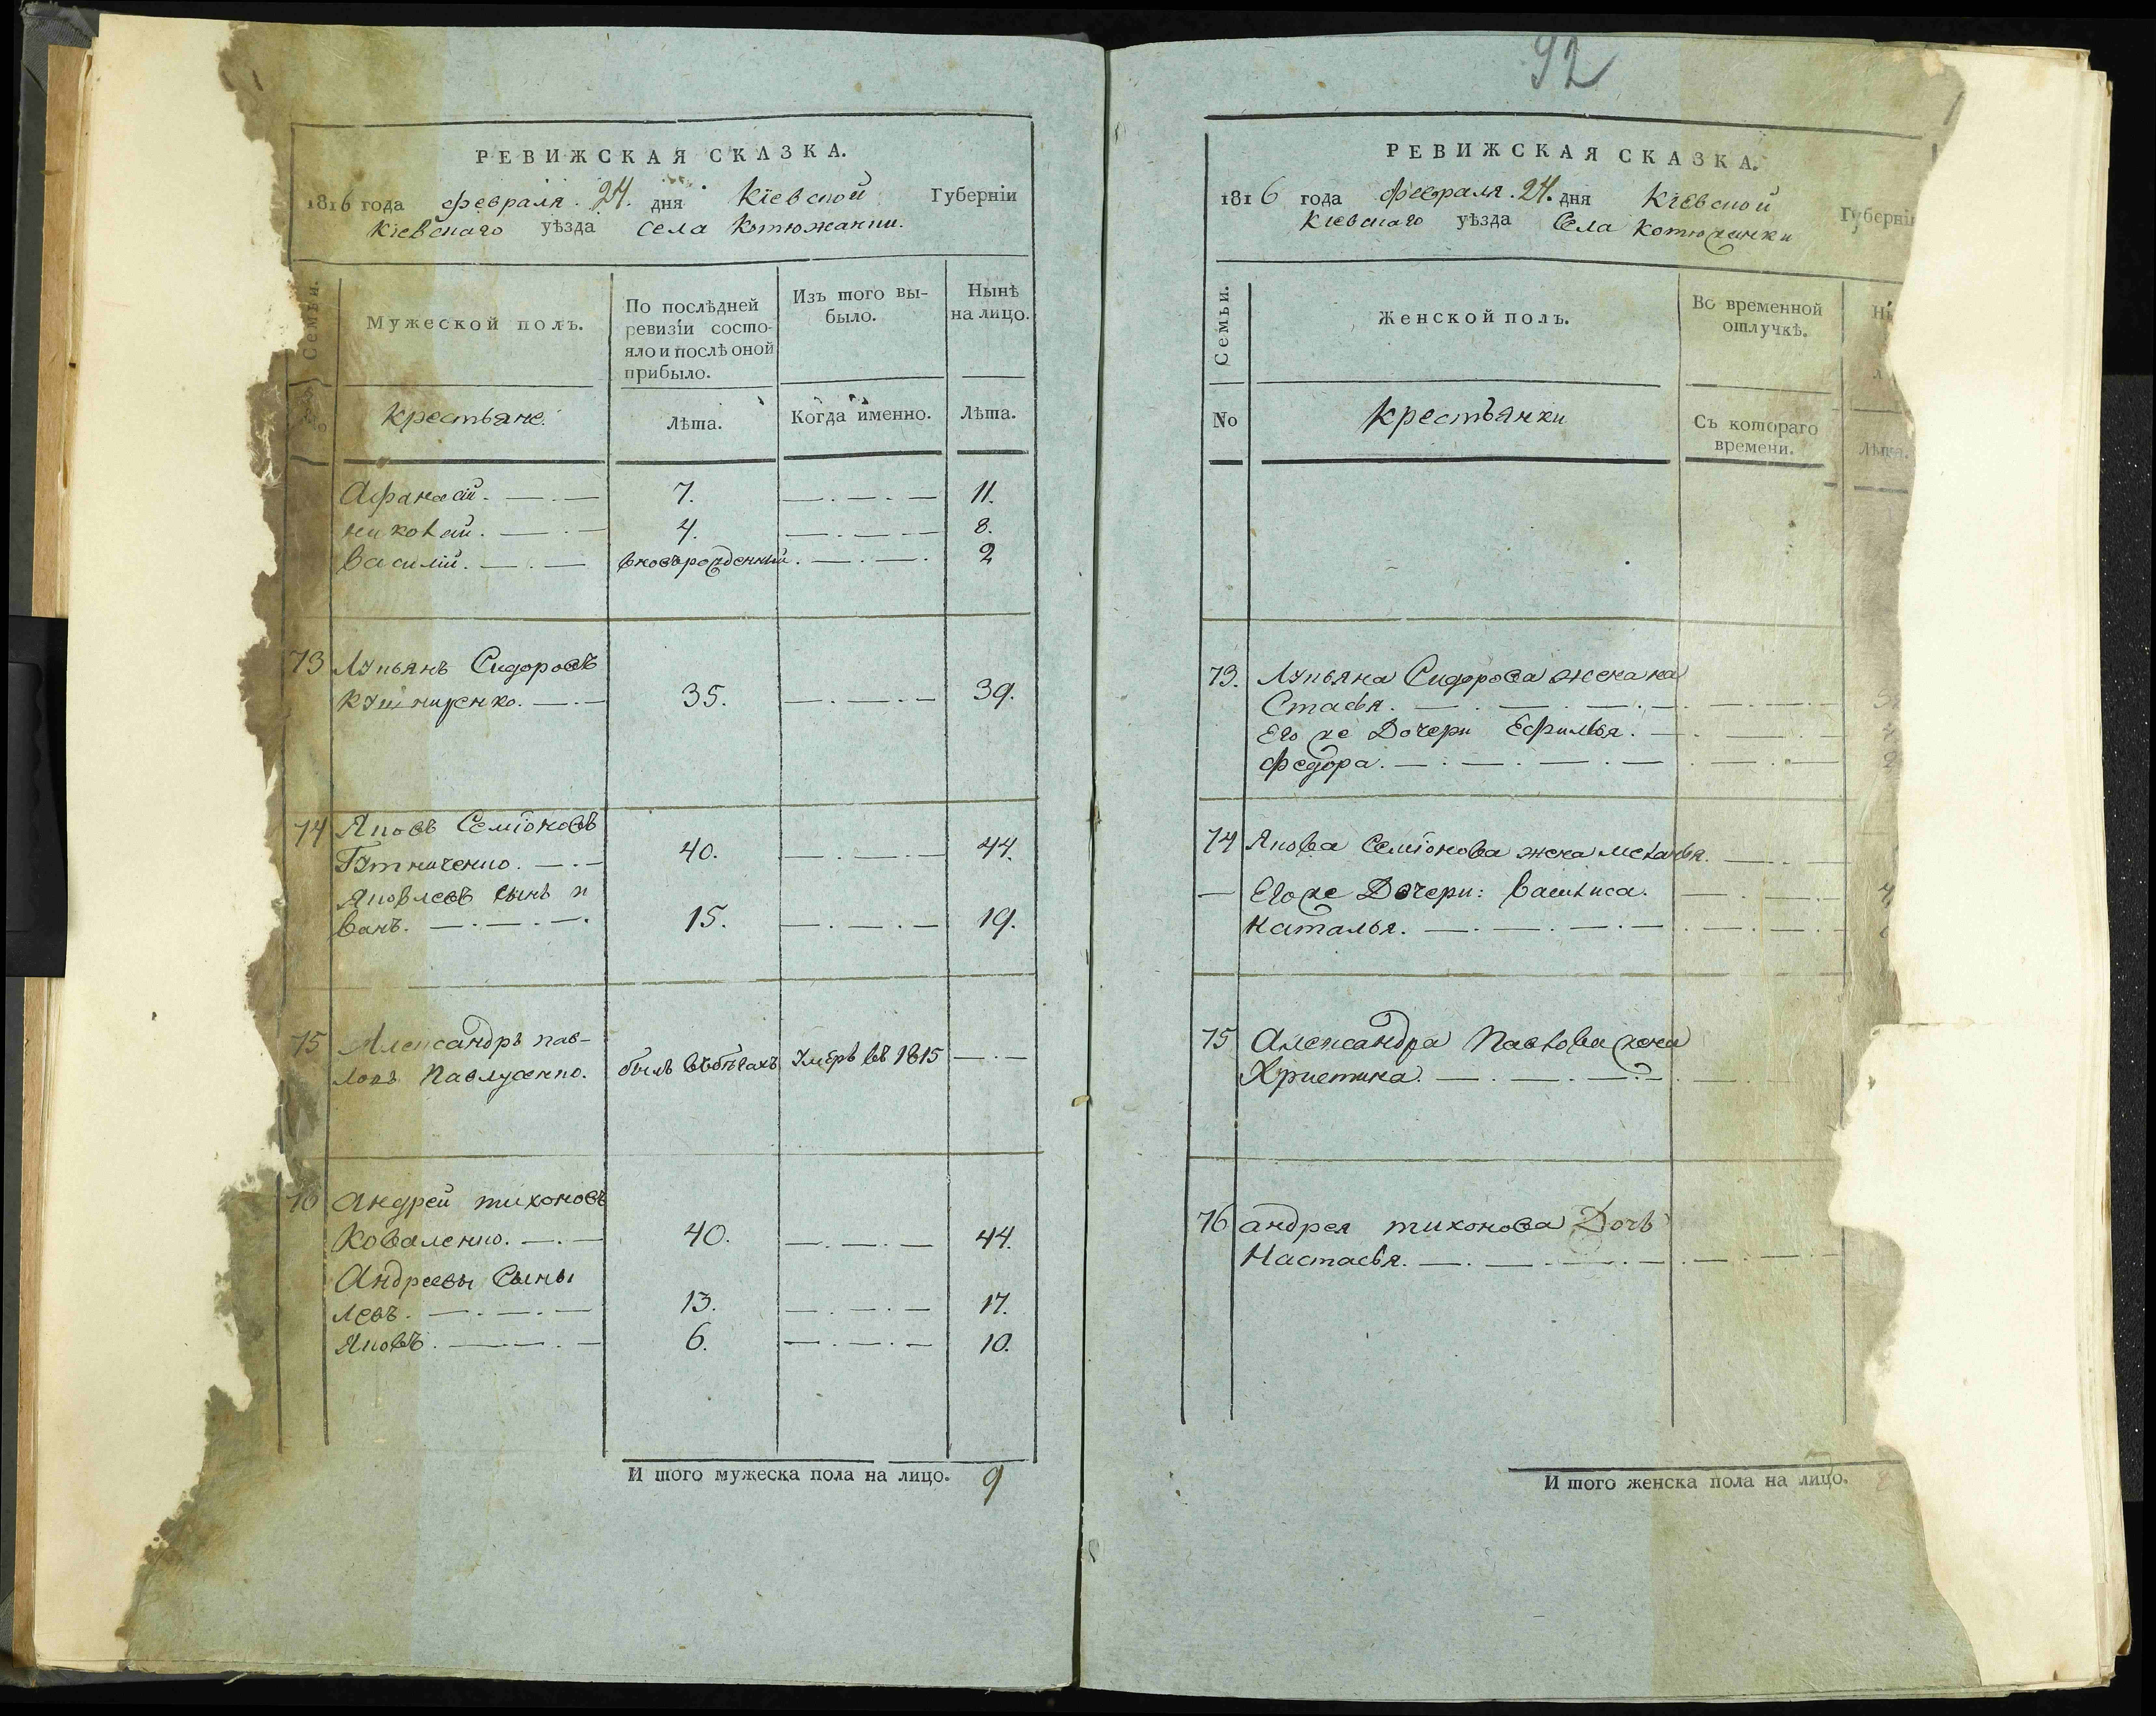 РЕВИЖСКАЯ СКАЗКА.
1816 года февраля. 24. дня Кіевской Губерніи
Кіевскаго уѣзда села Котюжанки.
Семьи.
Мужеской полъ.
По послѣдней ревизіи состо-
яло и послѣ оной
прибыло.
Изъ того вы-
было.
Нынѣ
на лицо.
Крестьяне.
Лѣта.
Когда именно.
Лѣта.
Афанасій. 7. 11.
Николай. 4. 8.
Василій. 2
73 Лукьянъ Сидоровъ
35. 39.
74 Яковъ Семіоновъ
40. 44.
Яковлевъ сынъ и
ванъ. 15. 19.
75 Александръ пав-
ловъ Павлусенко. былъ въ бѣгахъ Умеръ въ 1815
76 Андрей тихоновъ
Коваленко. 40. 44.
Андреевы Сыны
левъ. 13. 17.
Яковъ. 6. 10.
И того мужеска пола на лицо. 9
92
РЕВИЖСКАЯ СКАЗКА.
1816 года февраля. 24. дня Кіевской Губерніи
Кіевскаго уѣзда Села Котюжанки
Семьи.
Женской полъ.
Во временной
отлучкѣ.
No
Крестьянки
Съ котораго
времени.
Лѣта.
73. Лукьяна Сидорова жена на
Стасья.
Его же Дочери
Федора.
74 Якова Семіонова жена меланья.
Его же Дочери: Василиса.
Наталья.
75 Александра Павлова жена
Христина.
76 андрея тихонова Дочь
Настасья.
И того женска пола на лицо.